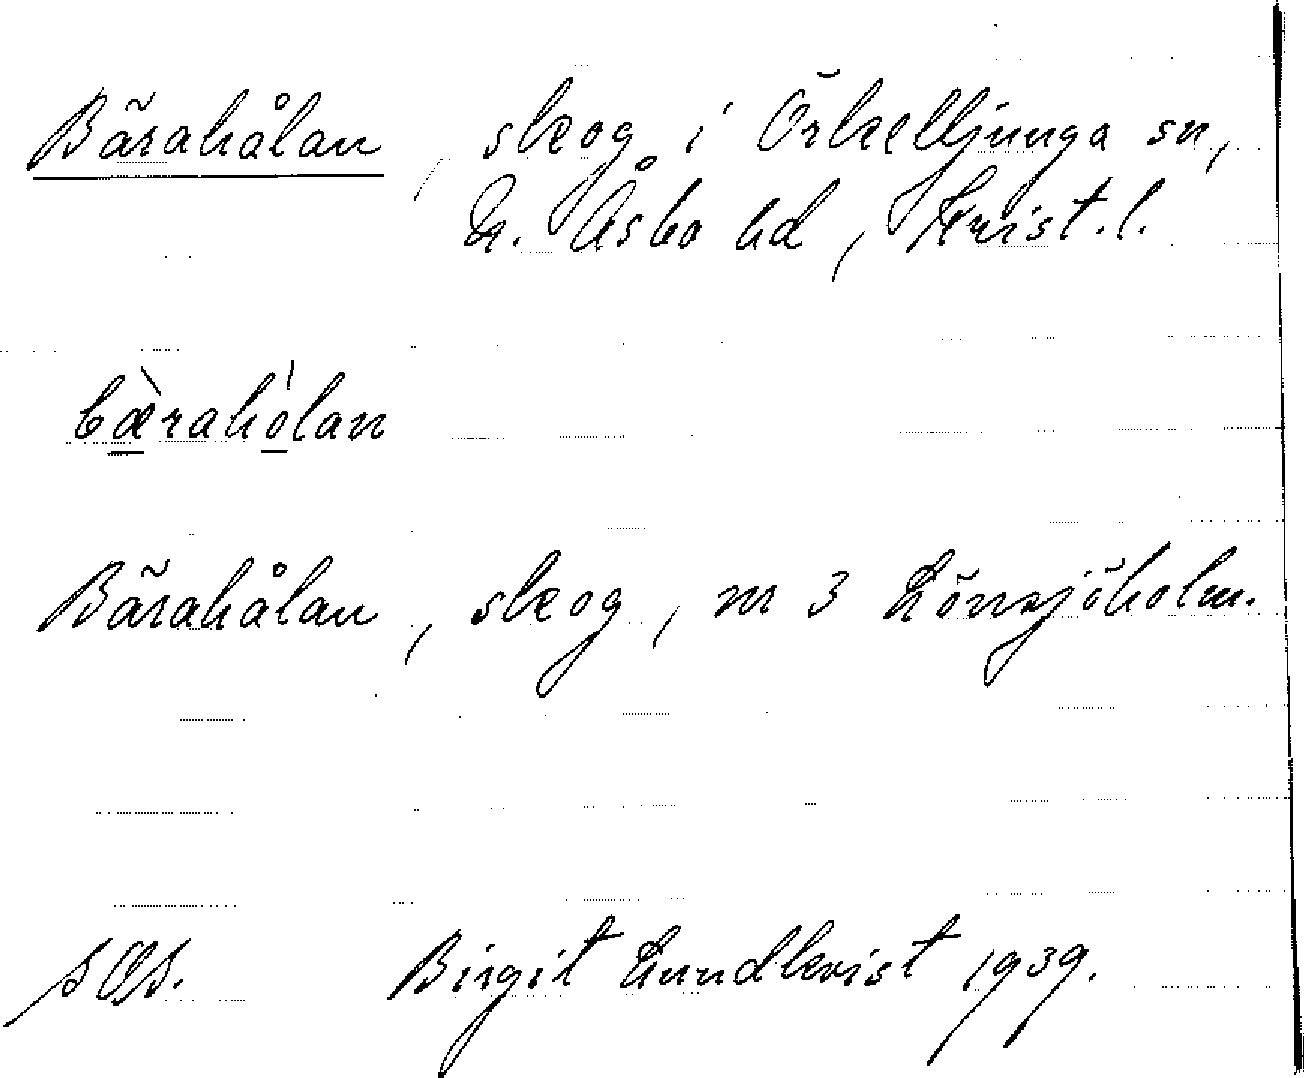 Bärahålan, skog i Örkelljunga sn,
N. Åsbo hd, Krist. l.
bæ̀rahólan
Bärahålan, skog, m 3 Lönnsjöholm.
Birgit Lundkvist 1939.